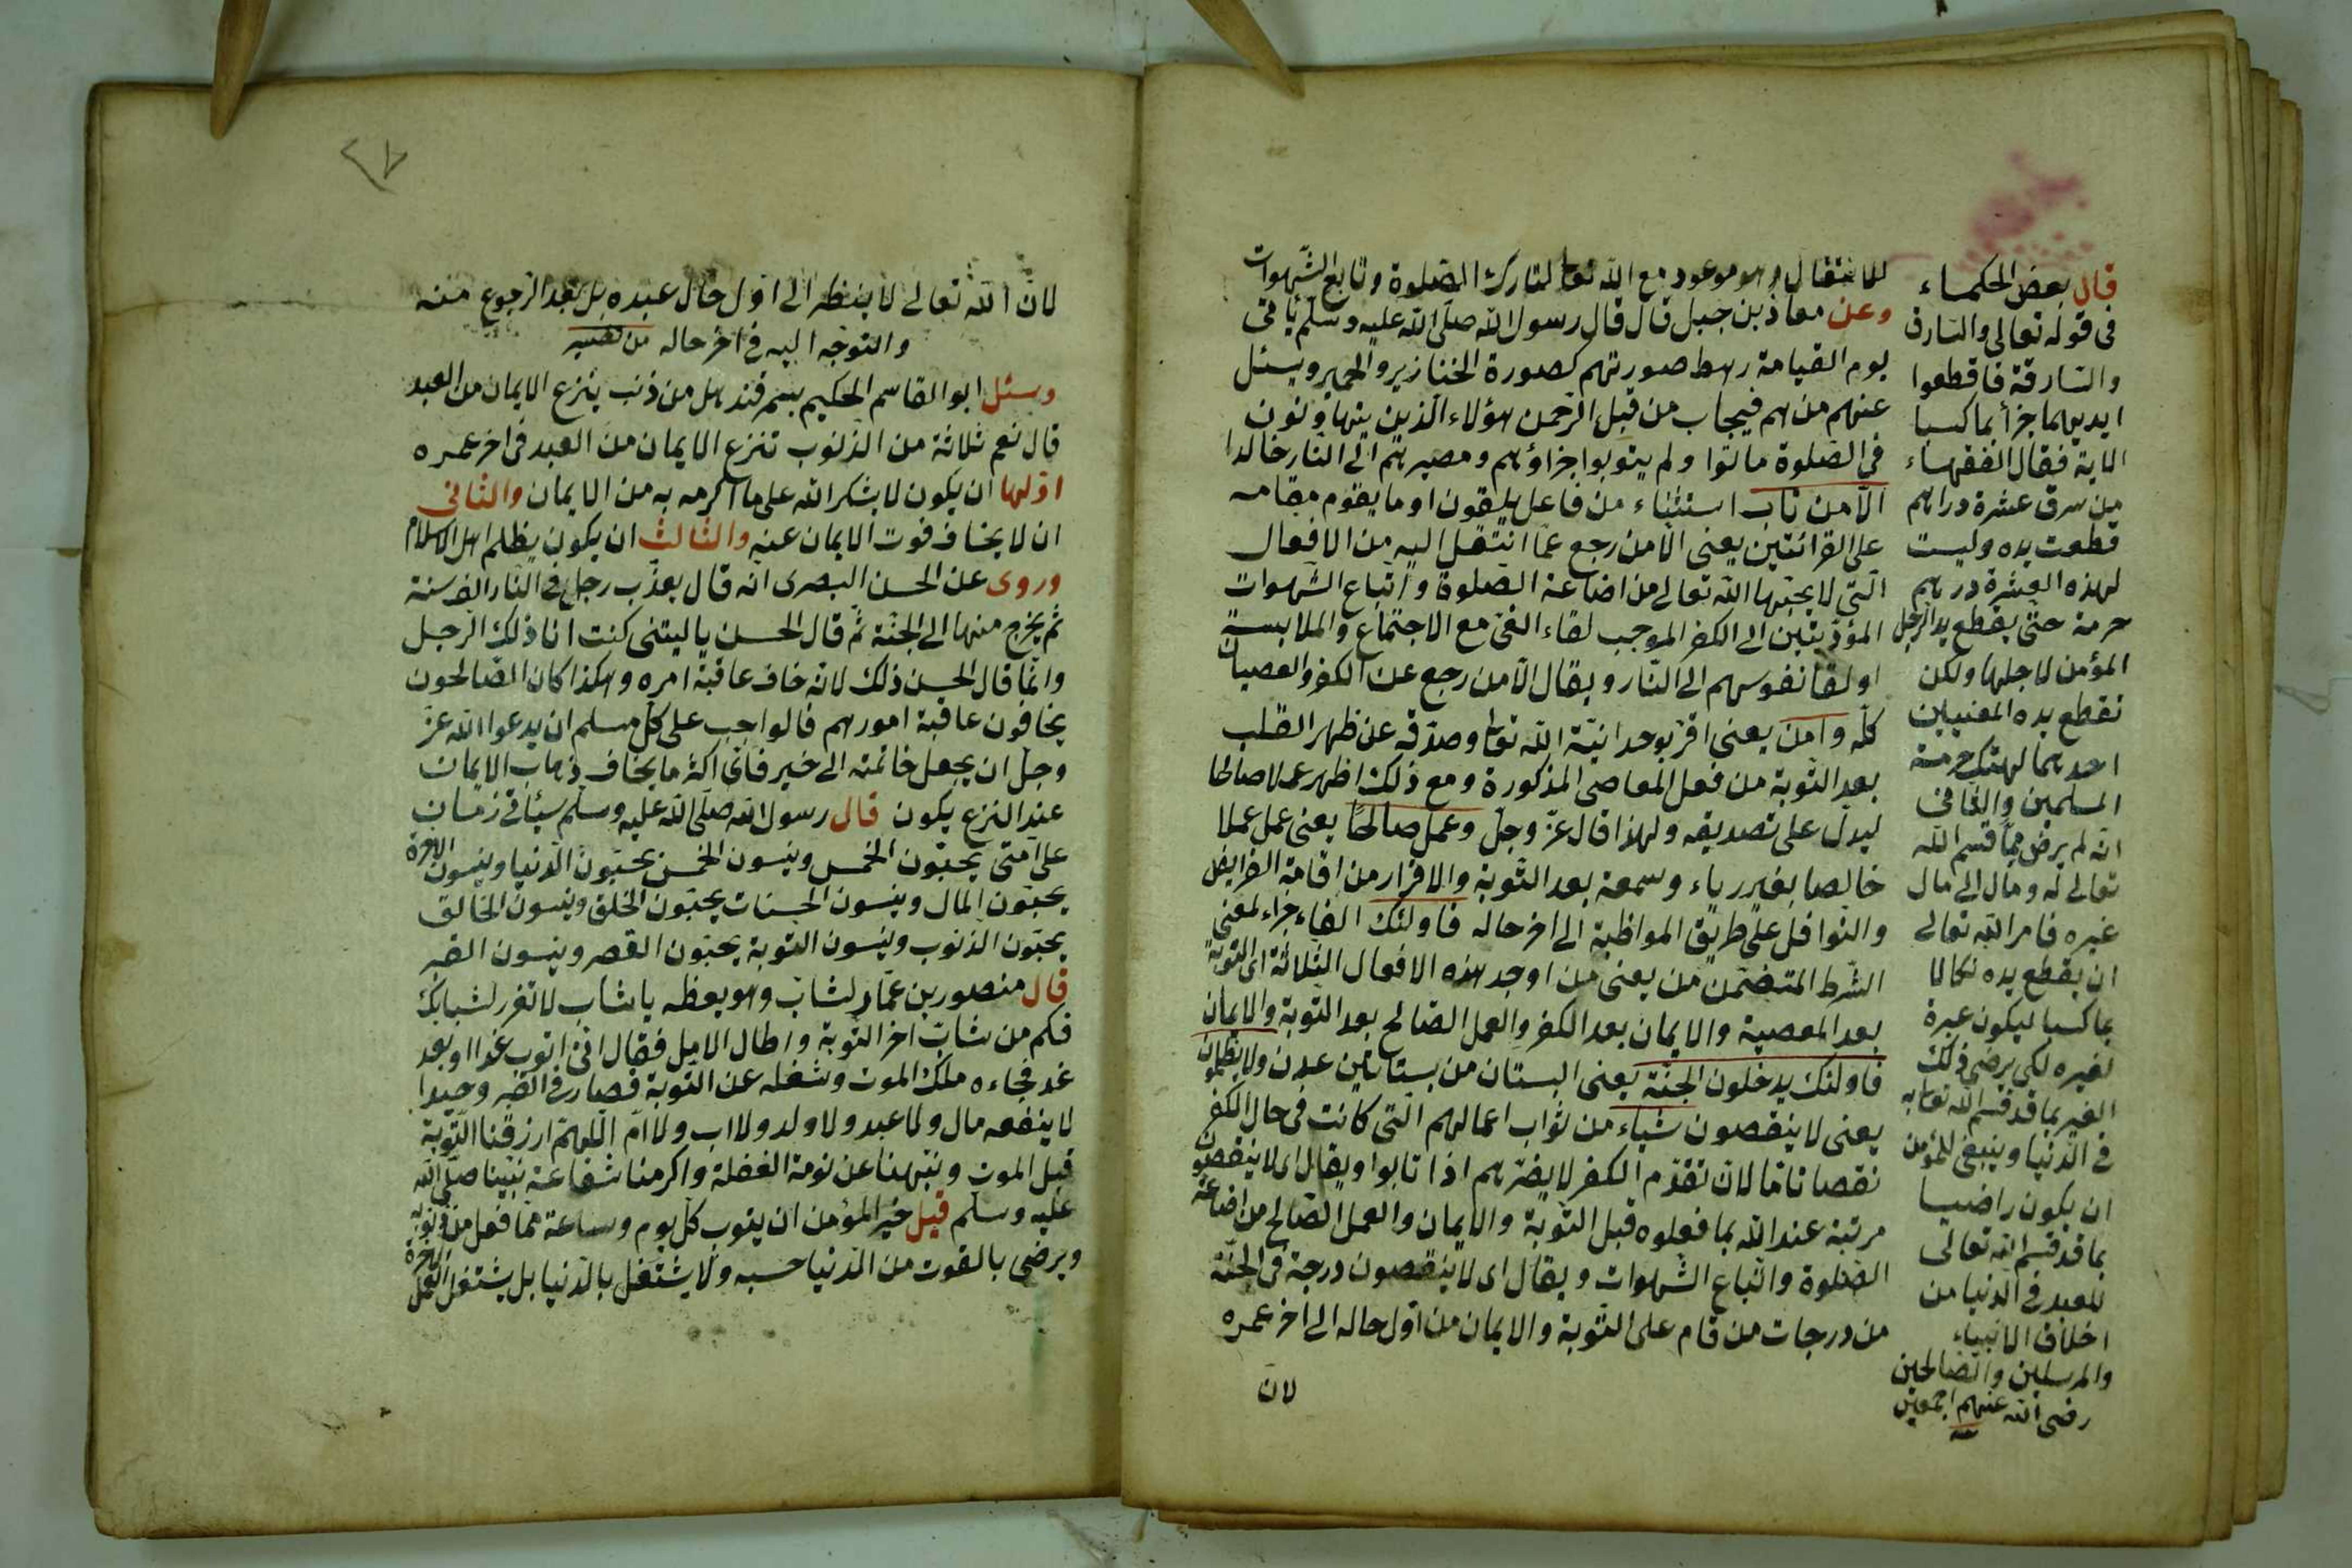 للانتقال وهو موعود مع الله تعا لتارك الصلوة وتابع الشهوات
وعن معاذ بن جبل قال قال رسول الله صلى الله عليه وسلم يأتى
يوم القيامة رهط صورتهم كصورة الخنازير والحمير ويسئل
عنهم من هم فيجاب من قبل الرحمن هؤلاء الذين يتهاونون
فى الصلوة ماتوا ولم يتوبوا جزاؤهم ومصيرهم الى النار خالدا
الا من تاب استثناء من فاعل يلقون او ما يقوم مقامه
على القرائتين يعنى الا من رجع عما انتقل اليه من الافعال
التى لا يحبها الله تعالى من اضاعة الصلوة واتباع الشهوات
المؤذيتين الى الكفر الموجب لقاء الغى مع الاجتماع والملابسة
او لقا نفوسهم الى النار ويقال الا من رجع عن الكفر والعصيان
كله وامن يعنى اقر بوحدانية الله تعا وصدقه عن ظهر القلب
بعد التوبة من فعل المعاصى المذكورة ومع ذلك اظهر عملا صالحا
ليدل على تصديقه ولهذا قال عز وجل وعمل صالحا يعنى عمل عملا
خالصا بغير رياء وسمعة بعد التوبة والاقرار من اقامة الفرايض
والنوافل على طريق المواظبة الى اخر حاله فاولئك الفاء جزاء لمعنى
الشرط المتضمن من يعنى من اوجد هذه الافعال الثلاثة اى التوبة
بعد المعصية والايمان بعد الكفر والعمل الصالح بعد التوبة والايمان
فاولئك يدخلون الجنة يعنى البستان من بستاتين عدن ولا يظلمون
يعنى لا ينقصون شياء من ثواب اعمالهم التى كانت فى حال الكفر
نقصانا ما لان تقدم الكفر لا يضرهم اذا تابوا ويقال اى لا ينقصون
مرتبة عند الله بما فعلوه قبل التوبة والايمان والعمل الصالح من اضاعة
الصلوة واتباع الشهوات ويقال اى لا ينقصون درجة فى الجنة
من درجات من قام على التوبة والايمان من اول حاله الى اخر عمره
لان
قال بعض الحكماء
فى قوله تعالى والسارق
والسارقة فاقطعوا
ايديهما جزأ بما كسبا
الاية فقال الفقهاء
من سرق عشرة دراهم
قطعت يده وليست
لهذه العشرة درهم
حرمة حتى يقطع يد الرجل
المؤمن لاجلها ولكن
نقطع يده المعنيين
احدهما لهتك حرمة
المسلمين والثانى
انه لم يرض مما قسم الله
تعالى له ومال الى مال
غيره فامر الله تعالى
ان يقطع يده نكالا
بما كسبا ليكون عبرة
لغيره لكى يرضى ذلك
الغير بما قد قسم الله تعا به
فى الدنيا وينبغى للمؤمن
ان يكون راضيا
بما قد قسم الله تعالى
للعبد فى الدنيا من
اخلاق الانبياء
والمرسلين والصالحين
رضى الله عنهم اجمعين
٢٧
لان الله تعالى لا ينظر الى اول حال عبده بل بعد الرجوع منه
والتوجه اليه فى اخر حاله من
وسئل ابو القاسم الحكيم بسمرقند هل من ذنب ينزع الايمان من العبد
قال نعم ثلاثة من الذنوب تنزع الايمان من العبد فى اخر عمره
اولها ان يكون لا يشكر الله على ما اكرمه به من الايمان والثانى
ان لا يخاف فوت الايمان عنه والثالث ان يكون يظلم اهل الاسلام
وروى عن الحسن البصرى انه قال يعذب رجل فى النار الف سنة
ثم يخرج منها الى الجنة ثم قال الحسن ياليتنى كنت انا ذلك الرجل
وانما قال الحسن ذلك لانه خاف عاقبة امره وهكذا كان الصالحون
يخافون عاقبة امورهم فالواجب على كل مسلم ان يدعوا الله عز
وجل ان يجعل خاتمته الى خير فان اكثر ما يخاف ذهاب الايمان
عند النزع يكون قال رسول الله صلى الله عليه وسلم سيأتى زمان
على امتى يحبون الخمس وينسون الخمس يحبون الدنيا وينسون الاخرة
يحبون المال وينسون الحسنات يحبون الخلق وينسون الخالق
يحبون الذنوب وينسون التوبة يحبون القصر وينسون القبر
قال منصور بن عمار لشاب وهو يعظه يا شاب لا تغرر لشبابك
فكم من شاب اخر التوبة واطال الامل فقال انى اتوب غدا او بعد
غد فجاءه ملك الموت وشغله عن التوبة فصار فى القبر وحيدا
لا ينفعه مال ولا عبد ولا ولد ولا اب ولا ام اللهم ارزقنا التوبة
قبل الموت ونبهنا عن نومة الغفلة واكرمنا شفاعة نبينا صلى الله
عليه وسلم قيل خير المؤمن ان يتوب كل يوم وساعة مما فعل من ذنوبه
ويرضى بالقوت من الدنيا حسبه ولا يشتغل بالدنيا بل يشتغل العمل الاخرة